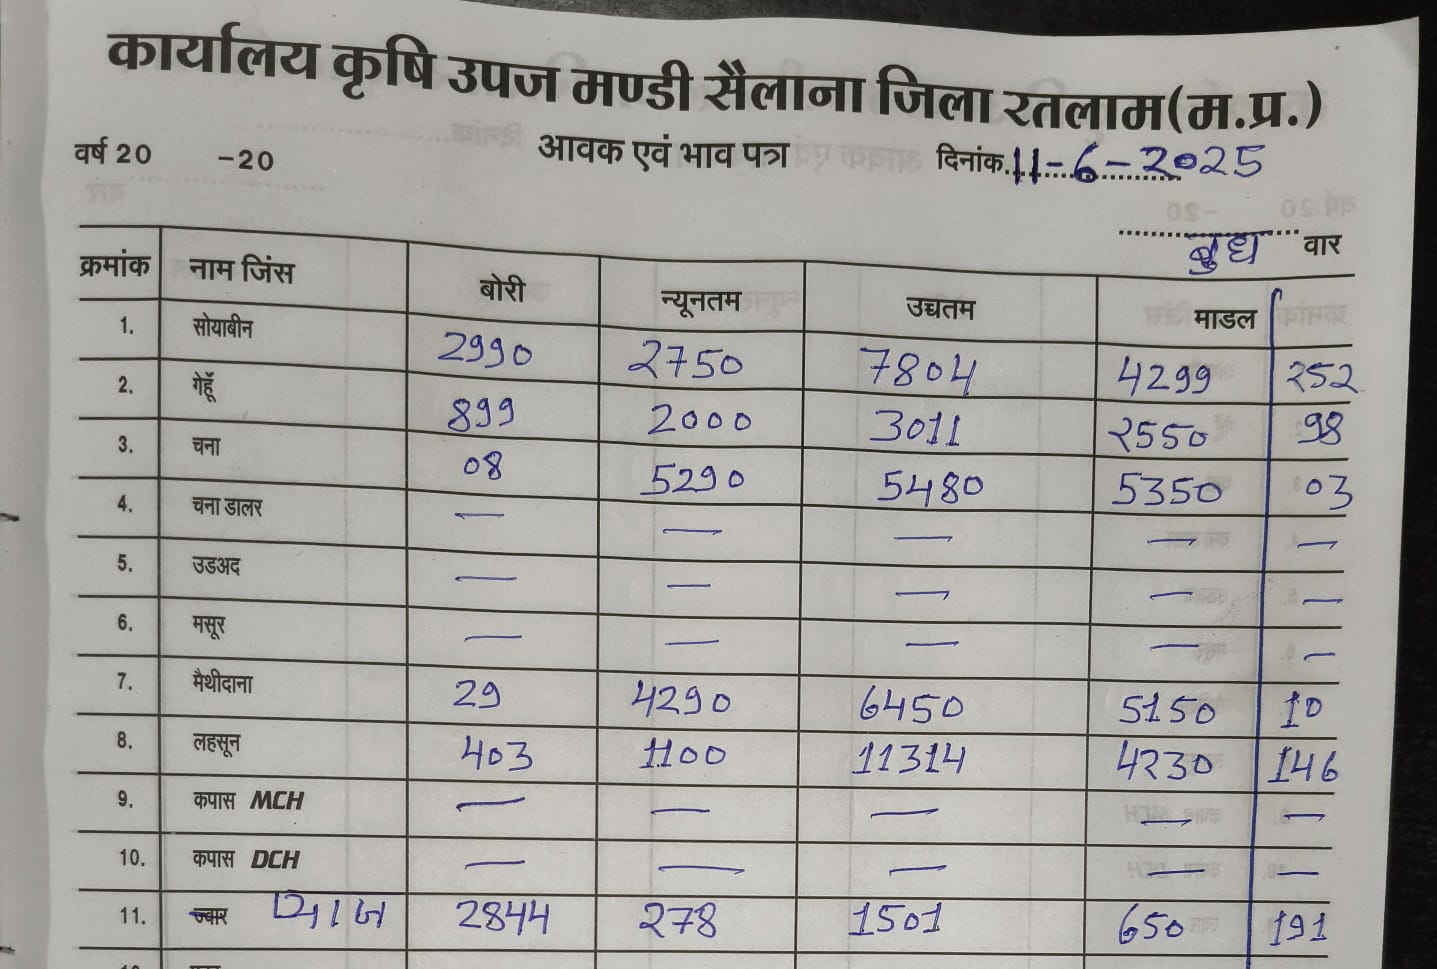 कार्यालय कृषि उपज मण्डी सैलाना जिला रतलाम(म.प्र.)
वर्ष 20 -20 आवक एवं भाव पत्रा दिनांक.11-6-2025
बुध वार
क्रमांक नाम जिंस बोरी न्यूनतम उच्चतम माडल
1. सोयाबीन 2990 2750 7804 4299 252
2. गेहूँ 899 2000 3011 2550 98
3. चना 08 5290 5480 5350 03
4. चना डालर — — — — —
5. उडअद — — — — —
6. मसूर — — — — —
7. मैथीदाना 29 4290 6450 5150 10
8. लहसून 403 1100 11314 4230 146
9. कपास MCH — — — — —
10. कपास DCH — — — — —
11. ज्वार प्याज 2844 278 1501 650 191